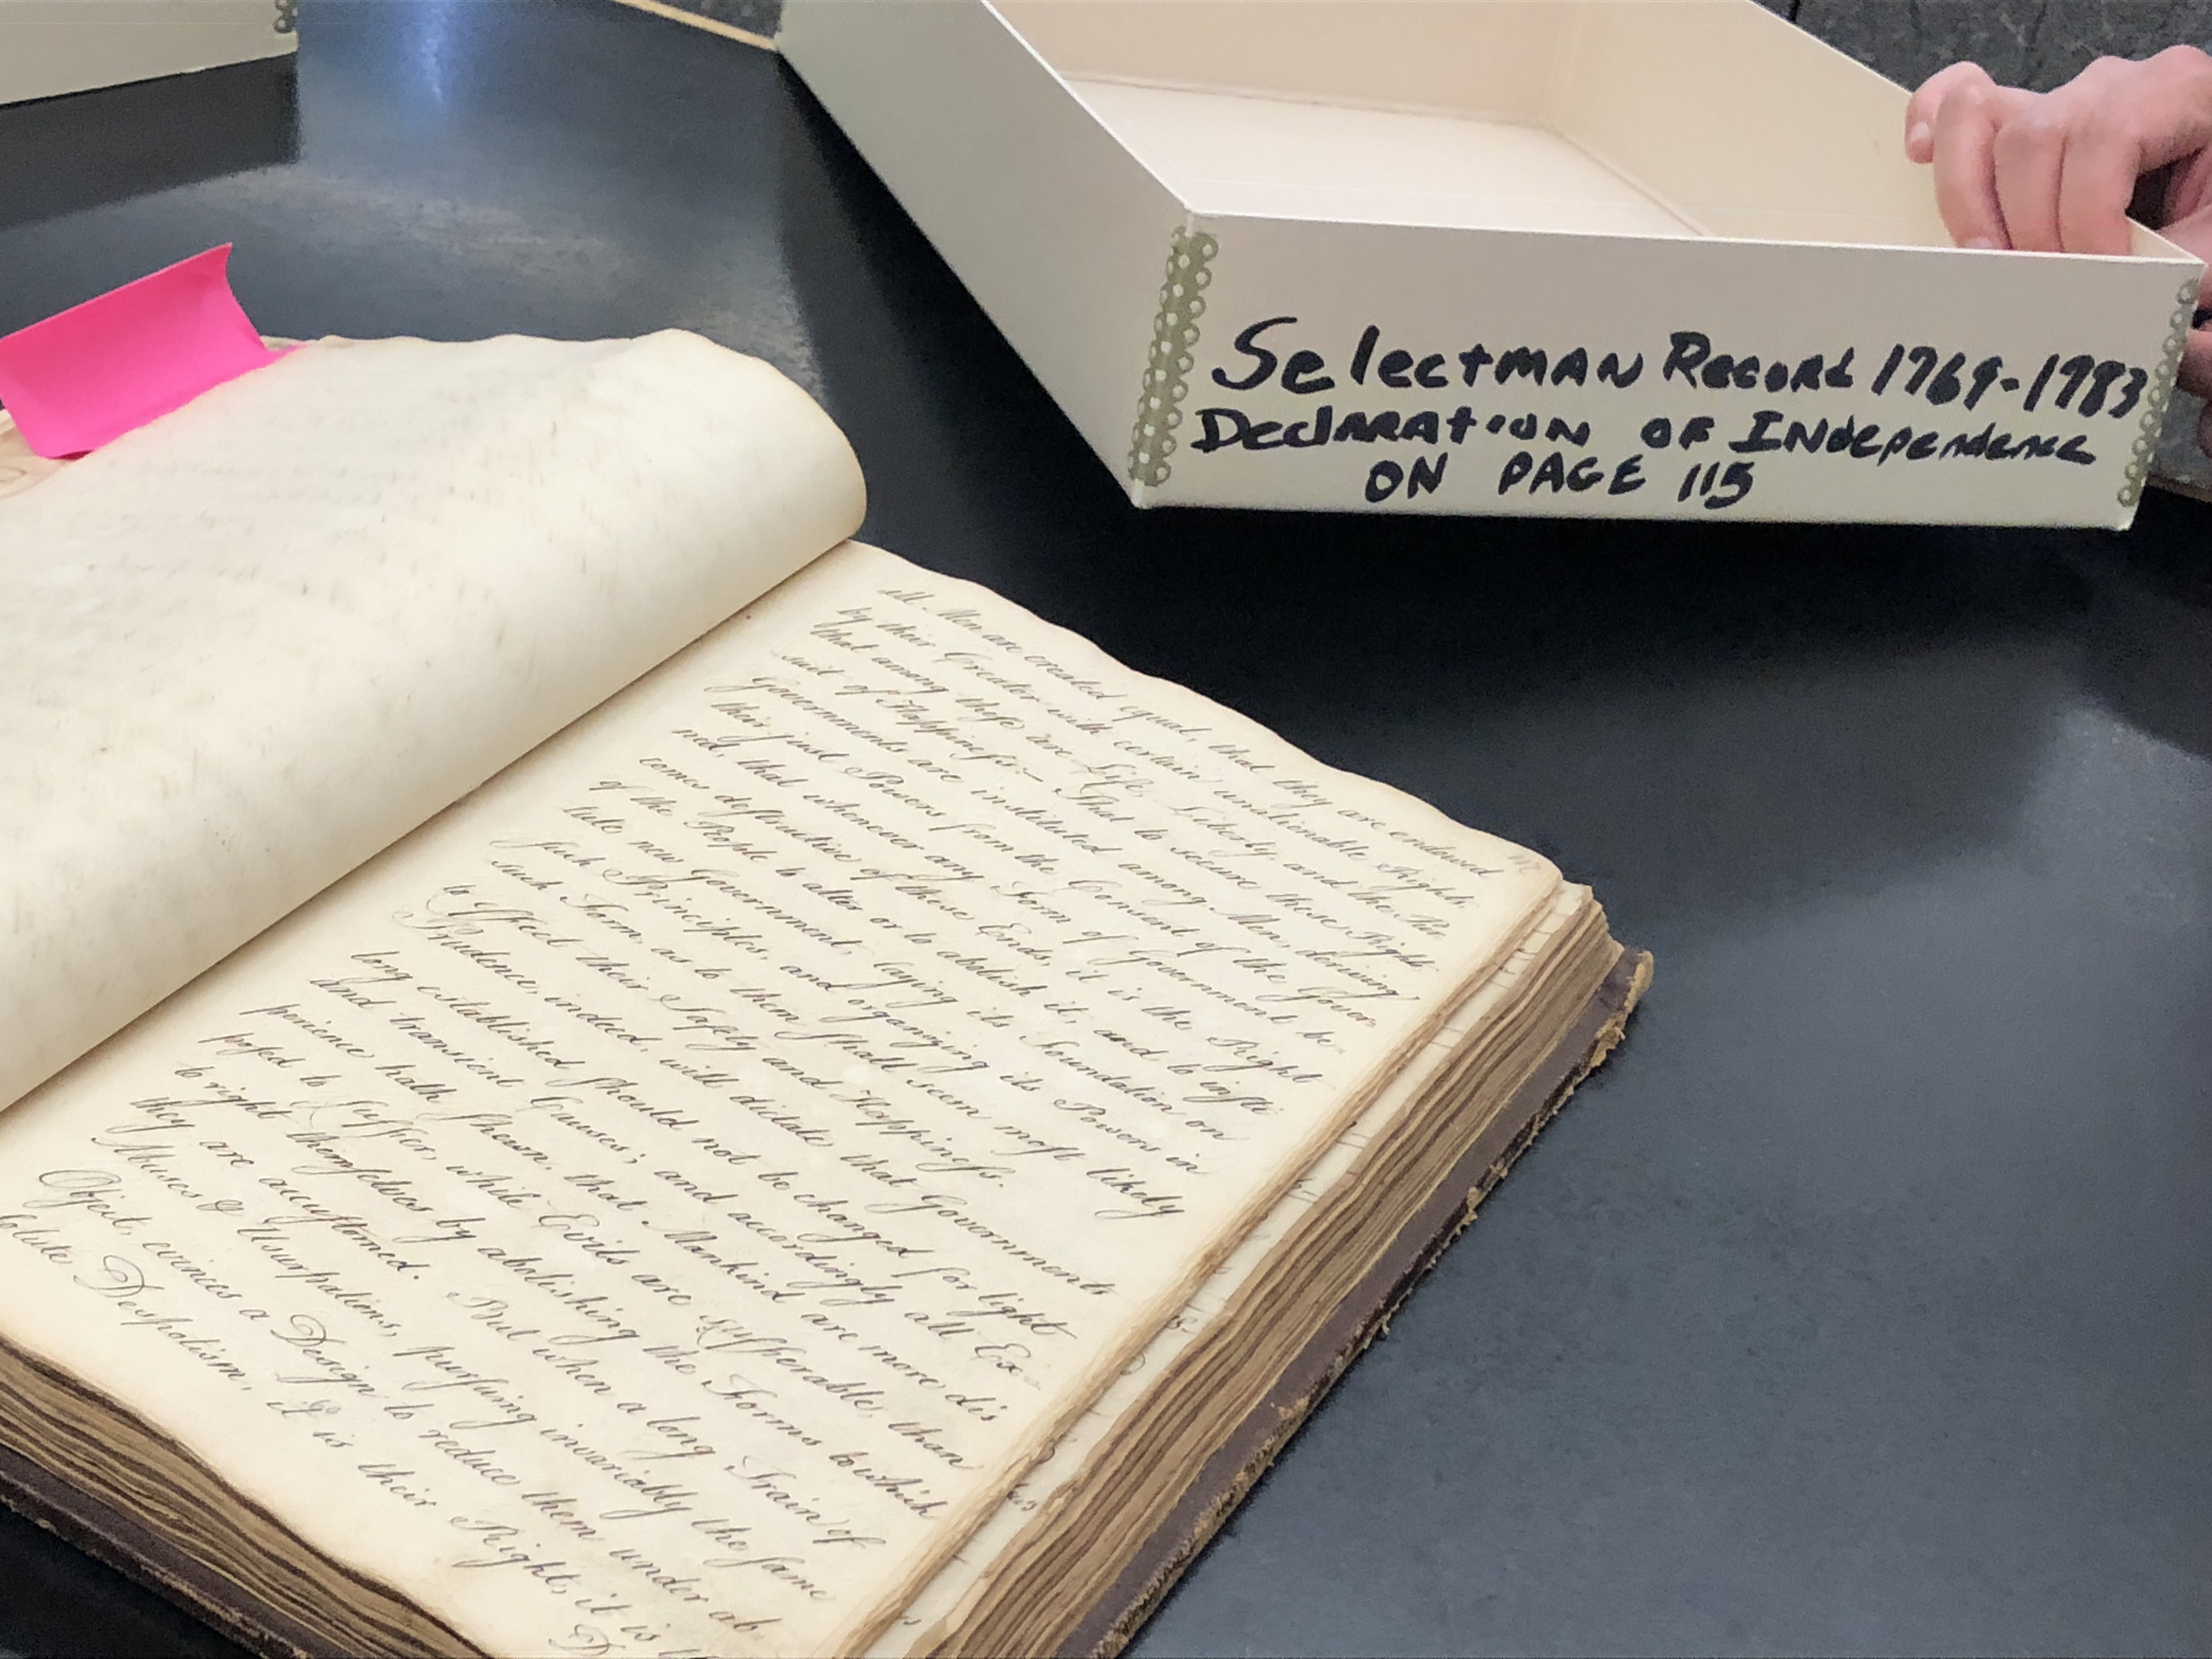 Selectman Record 1769-1783
Declaration of Independence
ON PAGE 115
all Men are created equal, that they are endowed
by their Creator with certain unalienable Rights,
that among these are Life, Liberty, and the Pur-
suit of Happiness:- That to secure these Rights
Governments are instituted among Men, deriving
their just Powers from the Consent of the Gover-
ned, that whenever any Form of Government be-
comes destructive of these Ends, it is the Right
of the People to alter or to abolish it, and to insti
tute new Government, laying its Foundation on
such Principles, and organizing its Powers in
such Form, as to them shall seem most likely
to Effect their Safety and Happiness.
Prudence, indeed, will dictate that Governments
long established should not be changed for light
and transient Causes; and accordingly all Ex-
perience hath shewn, that Mankind are more dis
posed to suffer, while Evils are sufferable, than
to right themselves by abolishing the Forms to which
they are accustomed. But when a long Train of
Abuses & Usurpations, pursuing invariably the same
Object, evinces a Design to reduce them under ab-
solute Despotism, it is their Right, it is